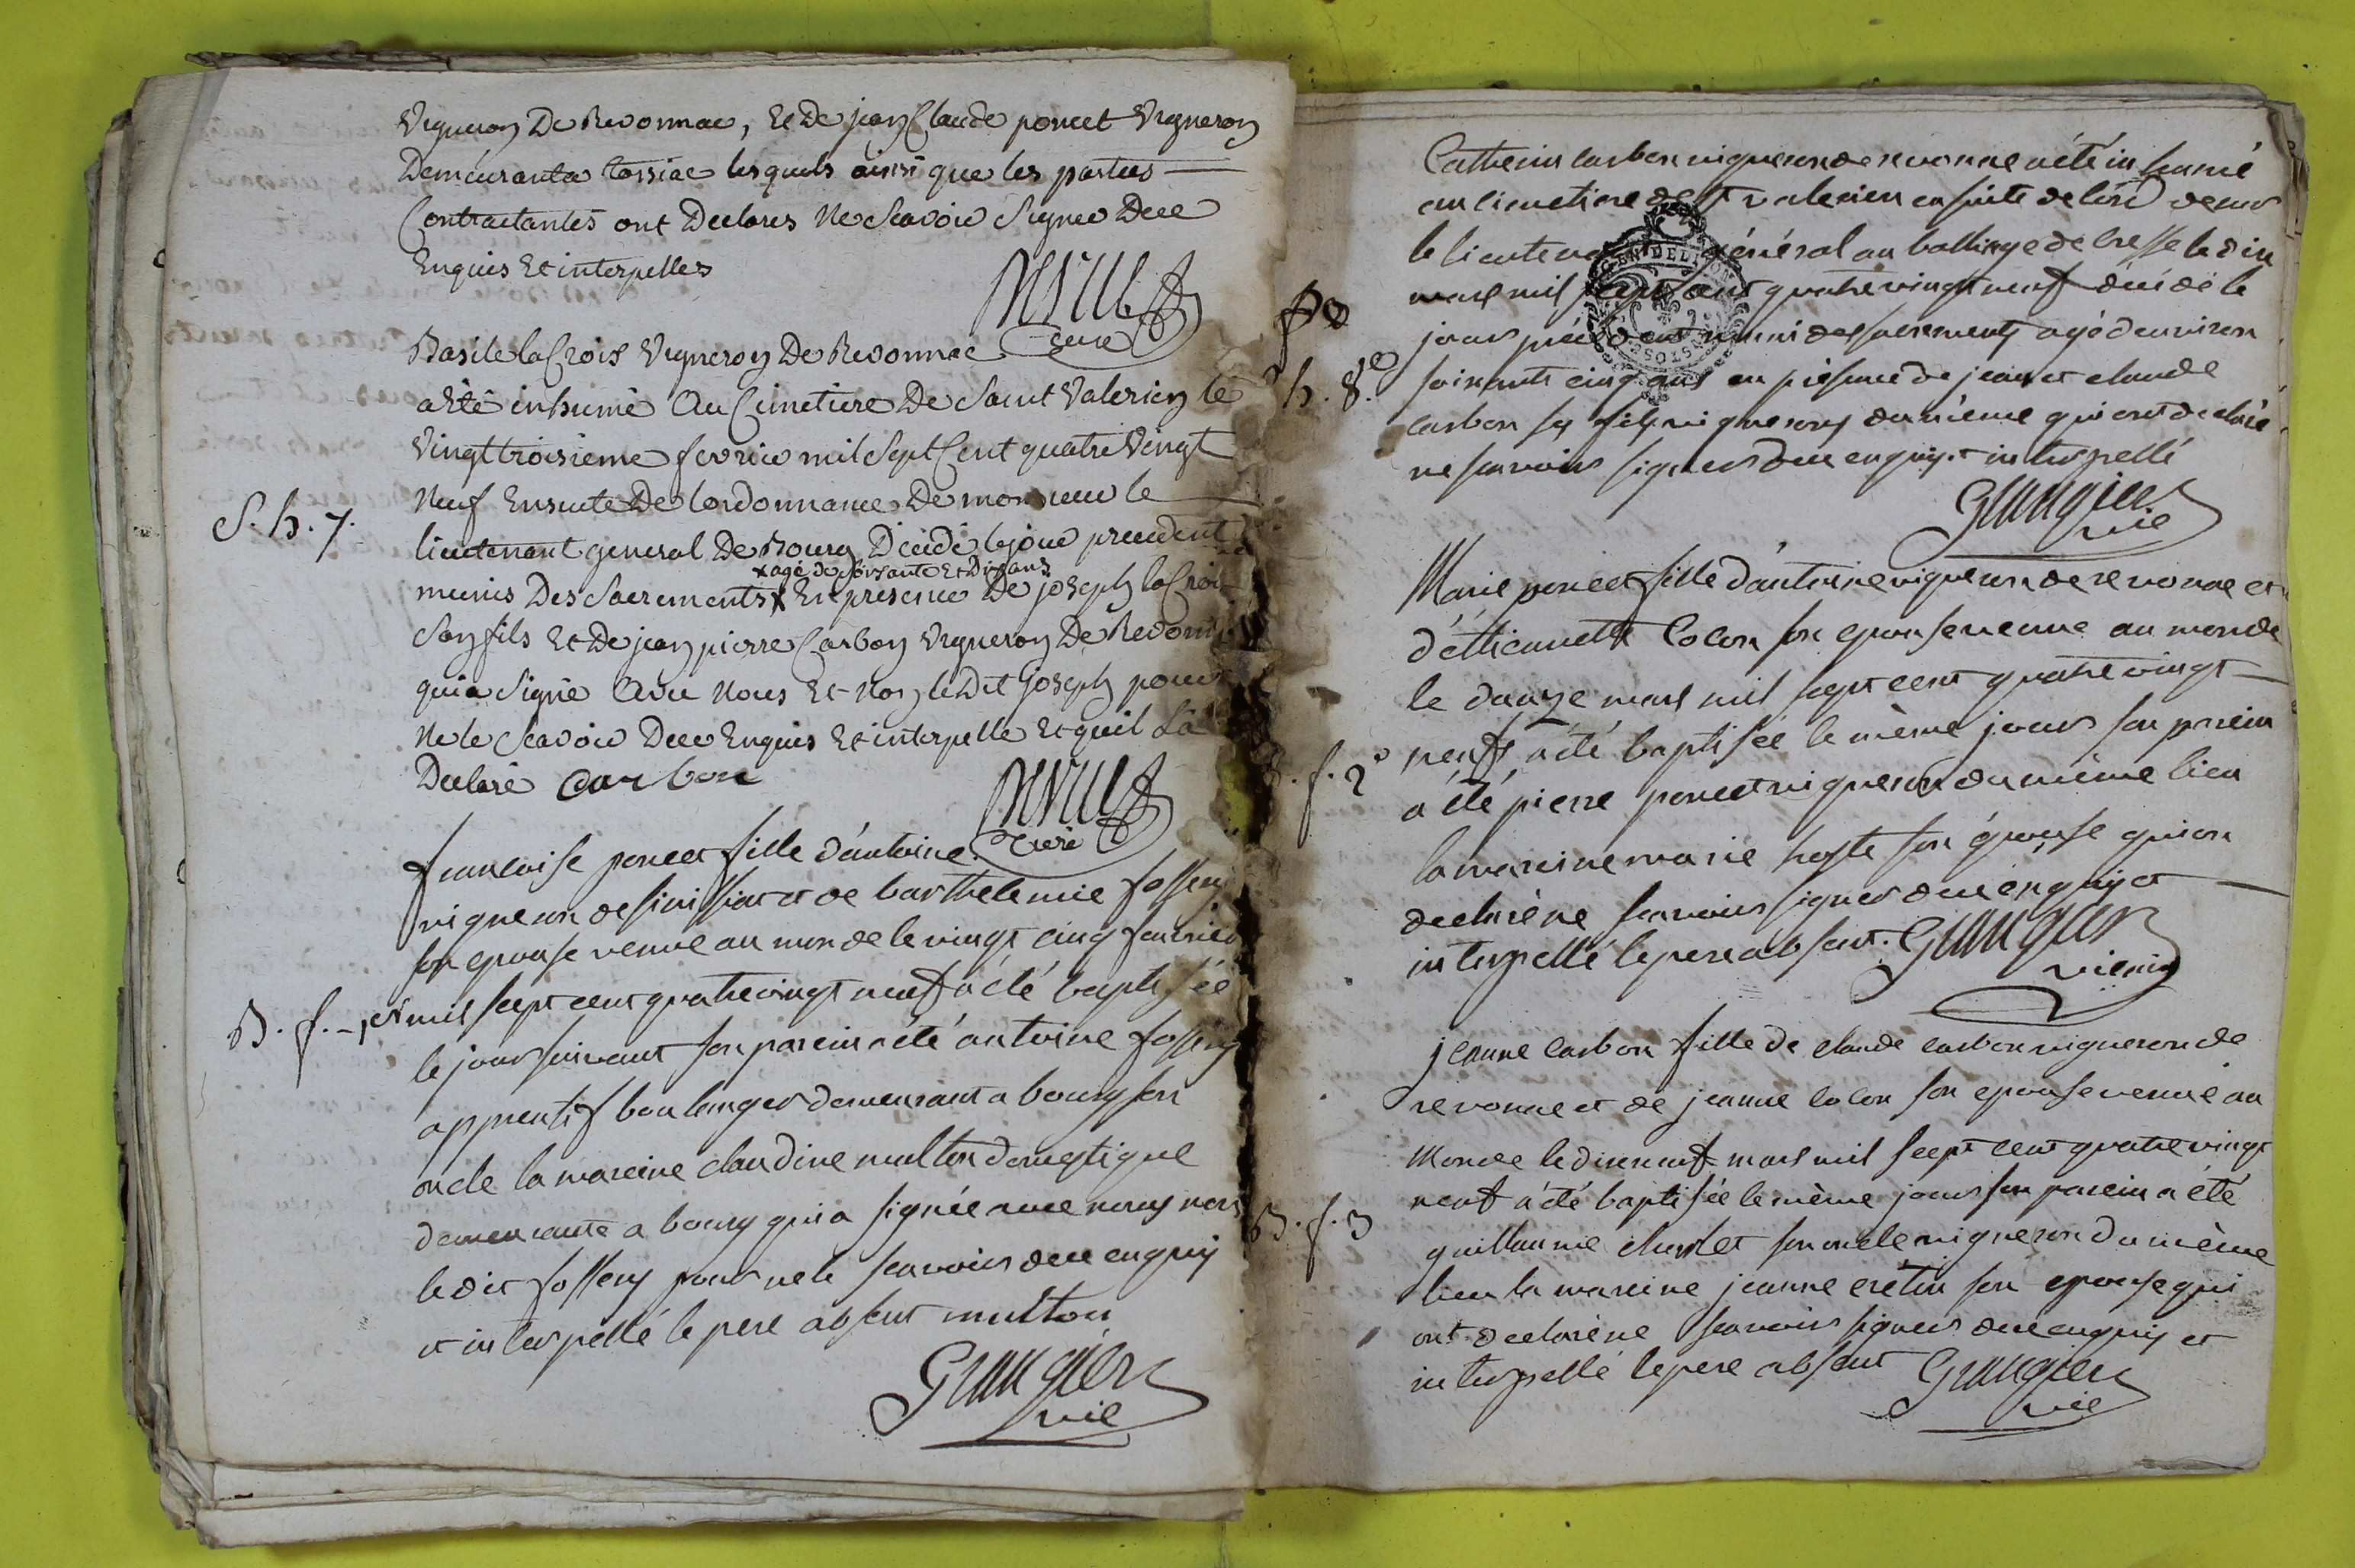 Vigneron De Revonnac, Et De jean Claude poncet Vigneron
Demeurant a tossiac lesquels ainsi que les parties
Contractantes ont Declares Ne Scavoir Signer Dece
Enquis Et interpelles
Curé
Basile la Crois Vigneron De Revonnac
a Eté inhumé Au Cimetiere De Saint Valerien le
Vingt troisieme fevrier mil Sept Cent quatre Vingt
S. h. 7.
Neuf Ensuite De lordonnance De monsieur le
lieutenant general De Bourg Decedé le jour precedent
x agé de soixante Et Dix ans
munis Des Sacrements x En presence De joseph la Croi
Son fils Et De jean pierre Carbon Vigneron De Revonn
qui a Signé Avec Nous Et Non le Dit joseph pour
Ne le Scavoir Dece Enquis Et interpelle Et quil La
Declaré carbon
Curé
francoise poncet fille d'antoine
vigneron de sinissiat et de barthelemie fossery
son epouse venue au monde le vingt cinq fevrier
B. f. 1er
mil sept cent quatre vingt neuf a été baptisée
le jour suivant son parein a été antoine fossery
apprentif boulanger demeurant a bourg son
oncle la mareine claudine multon domestique
demeurante a bourg qui a signée avec nous non
le dit fossery pour ne le scavoir dece enquis
et interpellé le pere absent multon
Grangier
vic
Catherin carbon vigneron de revonne a été inhumé
au cimetiere de st valerien en suite de l'ord de mr
le lieutenant général au balliage de bresse le dix
mars mil sept cent quatre vingt neuf décédé le
jour précédent muni des sacrements agé d'environ
S. h. 8e
soixante cinq ans en présence de jean et claude
carbon ses fils vignerons du même qui ont declaré
ne scavoir signer de ce enquis et interpellé
Grangier
vic
Marie poncet fille d'antoine vigneron de revonne et
d'éttiennette Colon son epouse venue au monde
le douze mars mil sept cent quatre vingt
neuf a été baptisée le même jour son parein
B. f. 2e
a été pierre poncet vigneron du même lieu
la mareine marie son épouse qui on
declaré ne scavoir signer de ce enquis et
interpellé le pere absent. Grangier
vicaire
jeanne carbon fille de claude carbon vigneron de
revonne et de jeanne colon son epouse venue au
Monde le dixneuf mars mil sept cent quatre vingt
neuf a été baptisée le même jour son parein a été
B. f. 3
guillaume son oncle vigneron du même
lieu la mareine jeanne cretin son epouse qui
ont declaré ne scavoir signer de ce enquis et
interpellé le pere absent Grangier
vic